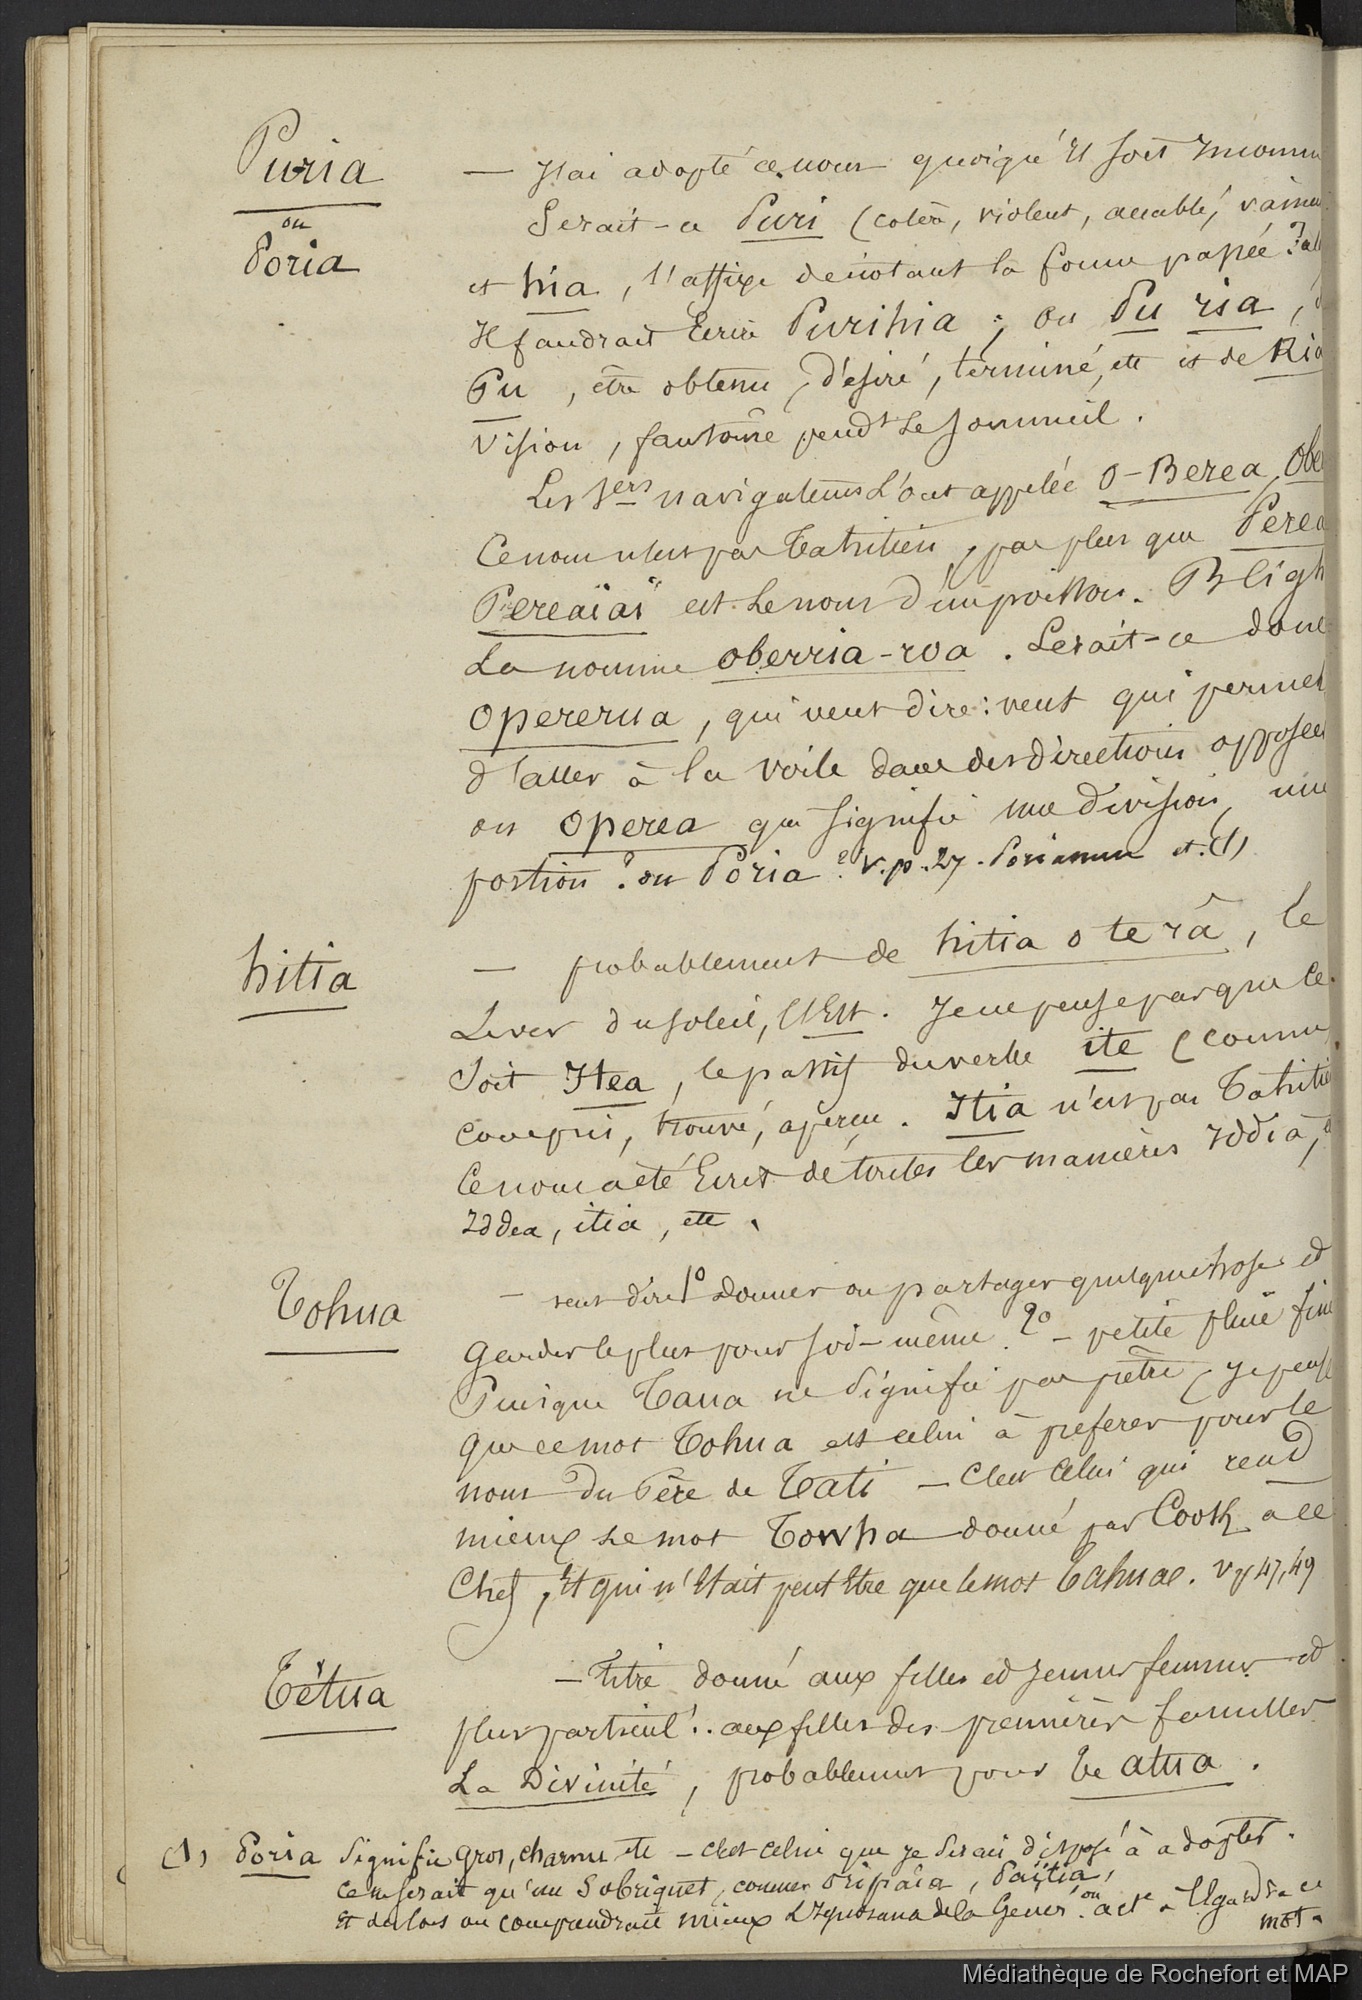 Puria
ou
Poria
— J'ai adopté ce nom quoiqu'il soit
Serait-ce Puri (colère, violent, accablé,
et hia, l'affixe dénotant la forme passée?
Il faudrait écrire Purihia; ou Pu ria,
Pu, être obtenu, désiré, terminé, etc et de Ria
Vision, fantôme pendt le sommeil.
Les 1ers navigateurs l'ont appelée O-Berea,
Ce nom n'est pas Tahitien, pas plus que Perea
Pereaiai est le nom d'un poisson. Bligh
La nomme oberria-roa. Serait-ce donc
opererua, qui veut dire: vent qui permet
d'aller à la voile dans des directions opposées
ou operea qui signifie une division, une
portion? ou Poria? v.p.27. et (1)
hitia
— probablement de hitia o te râ, le
Lever du soleil, l'Est. Je ne pense pas que ce
soit Itea, le passif du verbe ite (connu,
compris, trouvé, aperçu. Itia n'est pas Tahitien
Ce nom a été écrit de toutes les manières Iddia,
Iddea, itia, etc.
Tohua
— veut dire 1o Donner ou partager quelque chose et
Garder le plus pour soi-même. 2o — petite pluie fine
Puisque Taua ne signifie pas prêtre, je pense
que ce mot Tohua est celui à préférer pour le
nom du Père de Tati — C'est celui qui rend
mieux le mot Towha donné par Cook à ce
Chef, et qui n'était peut être que le mot v p 47, 49
Tétua
— Titre donné aux filles et jeunes femmes et
plus particult. aux filles des premières familles
La Divinité, probablement pour te atua.
(1) Poria signifie gros, charnu etc — c'est celui que je serais disposé à adopter.
Ce ne serait qu'un sobriquet, comme Oripaia, Paitia,
Et dès lors on comprendrait mieux de la à l'égard de ce
mot.
Médiathèque de Rochefort et MAP